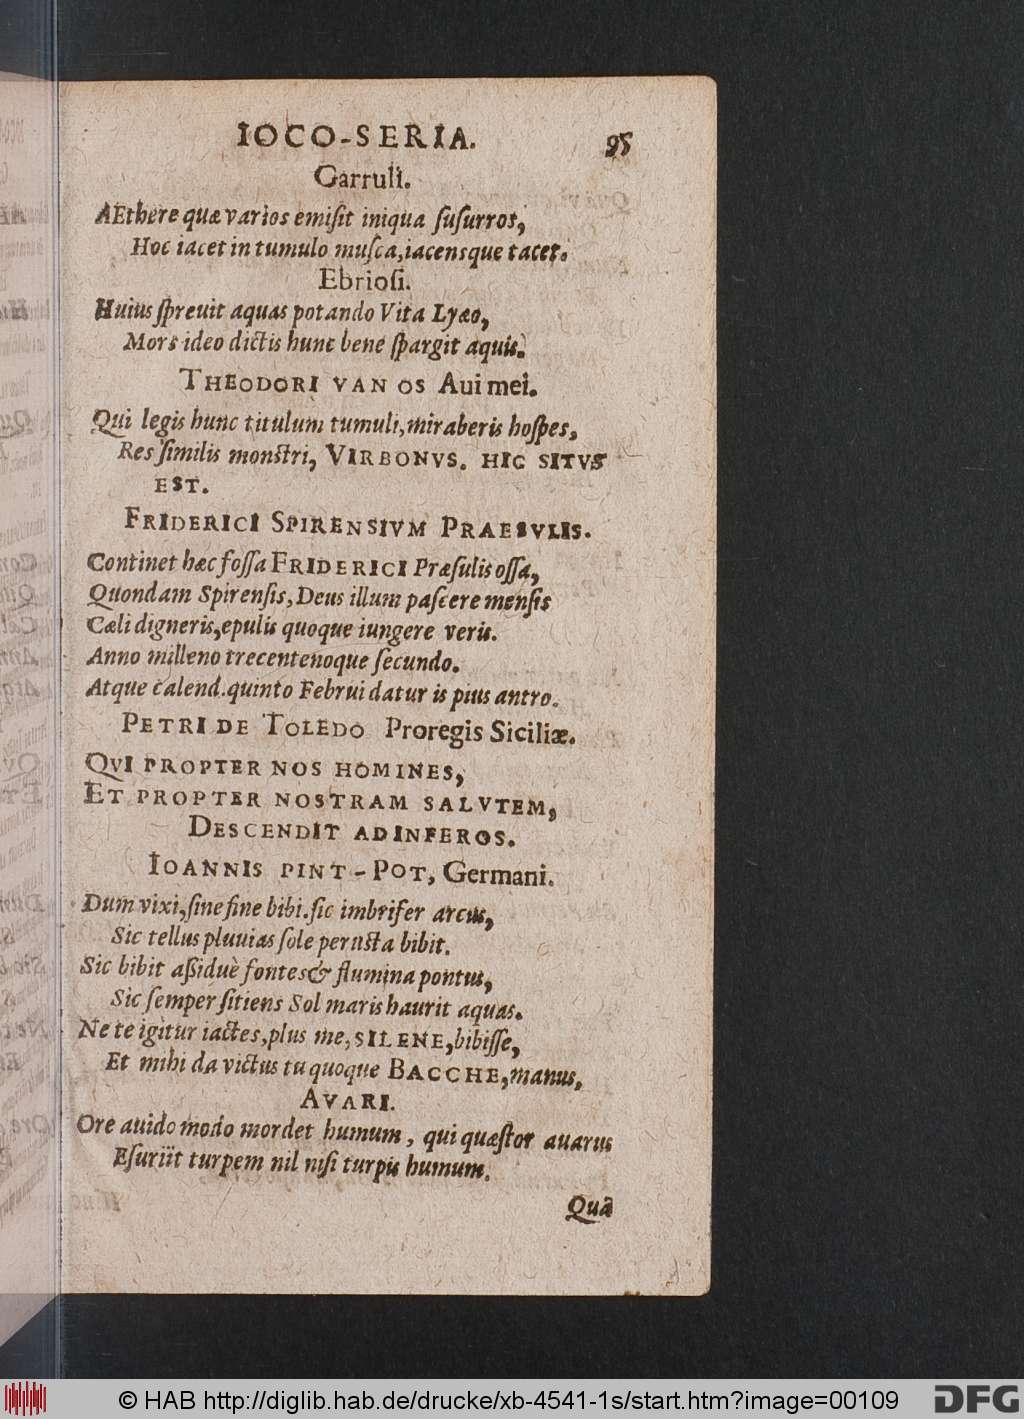 IOCO-SERIA. 95
Garruli.
AEthere quæ varios emiſit iniqua ſuſurros,
Hoc iacet in tumulo muſca, iacensque tacet.
Ebrioſi.
Huius ſprevit aquas potando Vita Lyæo,
Mors ideo dictis hunc bene ſpargit aquis.
THEODORI VAN OS Aui mei.
Qui legis hunc titulum tumuli, miraberis hoſpes,
Res ſimilis monſtri, VIRBONVS. HIC SITVS
EST.
FRIDERICI SPIRENSIVM PRAESVLIS.
Continet hæc foſſa FRIDERICI Præſulis oſſa,
Quondam Spirenſis, Deus illum paſcere menſis
Cæli digneris, epulis quoque iungere veris.
Anno milleno trecentenoque ſecundo.
Atque calend. quinto Februi datur is pius antro.
PETRI DE TOLEDO Proregis Siciliæ.
QVI PROPTER NOS HOMINES,
ET PROPTER NOSTRAM SALVTEM,
DESCENDIT AD INFEROS.
IOANNIS PINT-POT, Germani.
Dum vixi, ſine fine bibi. ſic imbrifer arcus,
Sic tellus pluuias ſole peruſta bibit.
Sic bibit aſſiduè fontes & flumina pontus,
Sic ſemper ſitiens Sol maris haurit aquas.
Ne te igitur iactes, plus me, SILENE, bibiſſe,
Et mihi da victus tu quoque BACCHE, manus.
AVARI.
Ore auido modo mordet humum, qui quæſtor auarus
Eſuriit turpem nil niſi turpis humum.
Quâ
© HAB http://diglib.hab.de/drucke/xb-4541-1s/start.htm?image=00109
DFG